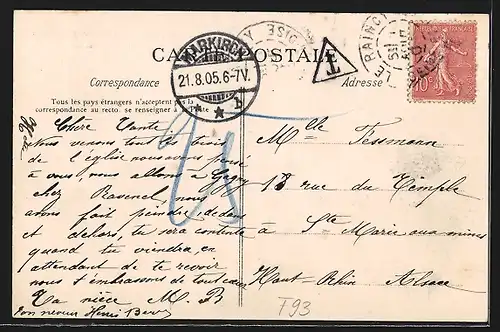 CARTE POSTALE
MARKIRCH
21.8.05.6-7V.
1
T
LE RAINCY
10
Correspondance
Adresse
Tous les pays étrangers n'acceptent pas la
correspondance au recto. se renseigner à la Poste
Chère Tante
Nous venons tout les trois
de l'église nous avons pensé
à vous, nous allons à Gagny
chez Ravenel, nous
avons fait peindre, dedans
et dehors, tu sera contente
quand tu viendra, en
attendant de te revoir
nous t'embrassons de tout cœur
Ta nièce M. B
ton neveu Henri
Mlle Tessmann
18 rue du Temple
à Ste Marie aux mines
Haut-Rhin Alsace
25
F93